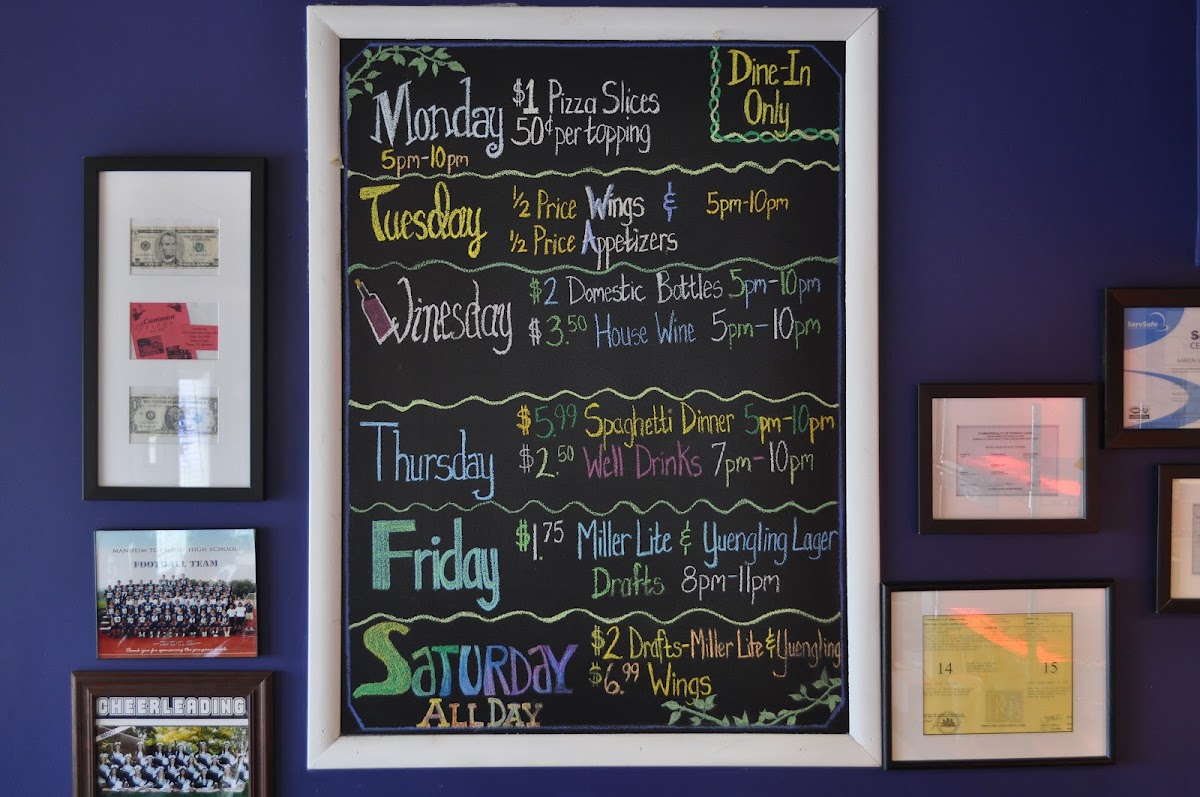 Monday
5pm-10pm
$1 Pizza Slices
50¢ per topping
Dine-In
Only
Tuesday
½ Price Wings & 5pm-10pm
½ Price Appetizers
Winesday
$2 Domestic Bottles 5pm-10pm
$3.50 House Wine 5pm-10pm
Thursday
$5.99 Spaghetti Dinner 5pm-10pm
$2.50 Well Drinks 7pm-10pm
Friday
$1.75 Miller Lite & Yuengling Lager
Drafts 8pm-11pm
SATURDAY
ALL DAY
$2 Drafts-Miller Lite & Yuengling
$6.99 Wings
MANHEIM TOWNSHIP HIGH SCHOOL
FOOTBALL TEAM
Thank you for sponsoring the program
CHEERLEADING
ServSafe
14 15